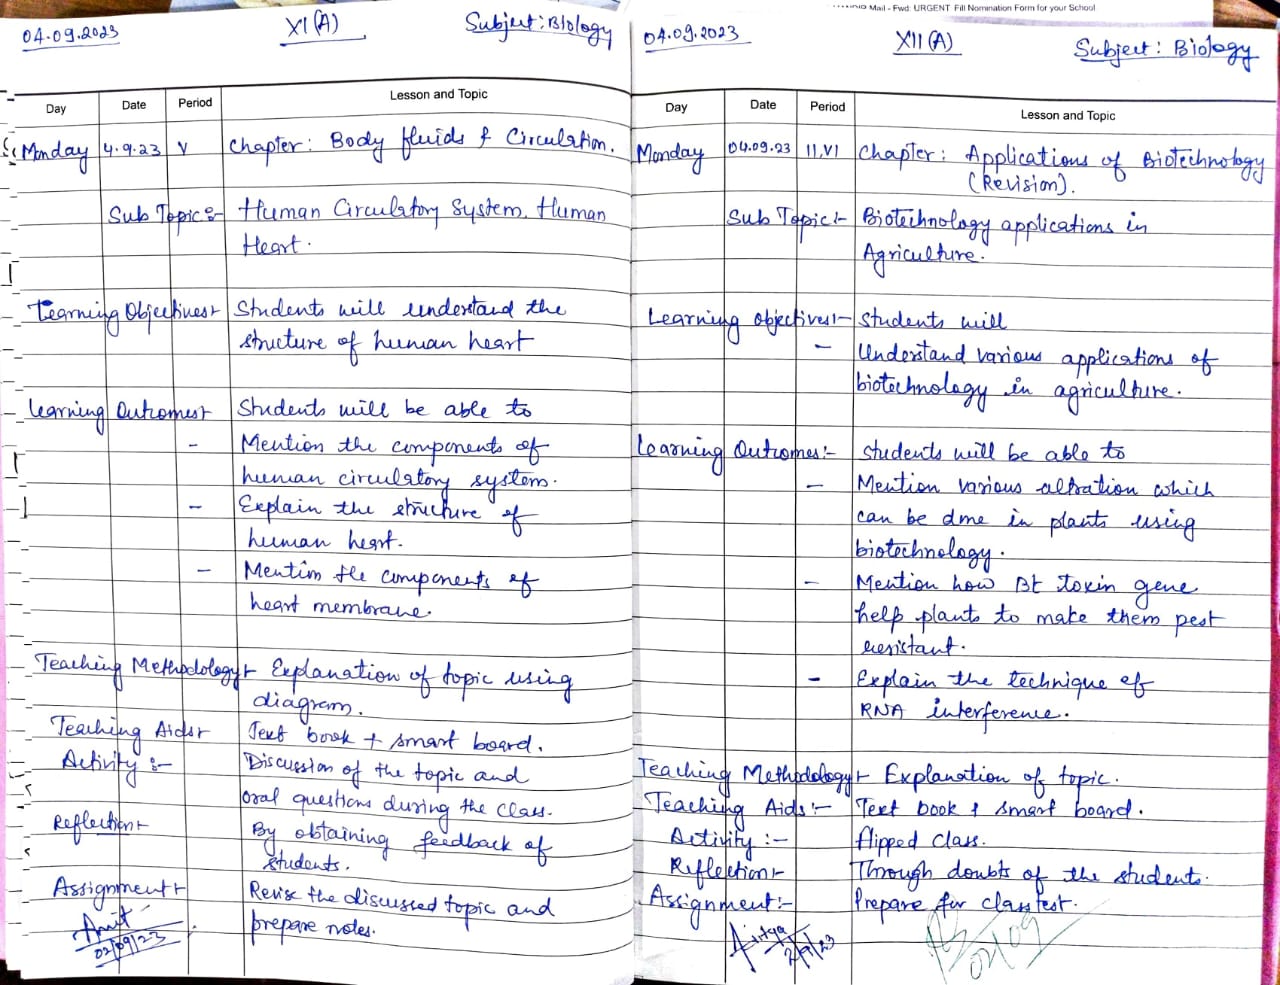 Mail - Fwd: URGENT Fill Nomination Form for your School
04.09.2023 XI(A) Subject: Biology
Day Date Period Lesson and Topic
Monday 4.9.23 V Chapter: Body fluids & Circulation.
Sub Topic:- Human Circulatory System. Human
Heart.
Learning Objectives:- Students will understand the
structure of human heart
Learning Outcomes:- Students will be able to
- Mention the components of
human circulatory system.
- Explain the structure of
human heart.
- Mention the components of
heart membrane.
Teaching Methodology:- Explanation of topic using
diagram.
Teaching Aids:- Text book + smart board.
Activity :- Discussion of the topic and
oral questions during the class.
Reflection:- By obtaining feedback of
students.
Assignment:- Revise the discussed topic and
prepare notes.
Amit
02/09/23
04.09.2023 XII(A) Subject: Biology
Day Date Period Lesson and Topic
Monday 04.09.23 II,VI Chapter: Applications of Biotechnology
(Revision).
Sub Topic:- Biotechnology applications in
Agriculture.
Learning Objectives:- Students will
- Understand various applications of
biotechnology in agriculture.
Learning Outcomes:- Students will be able to
- Mention various altration which
can be done in plants using
biotechnology.
- Mention how Bt toxin gene
help plants to make them pest
resistant.
- Explain the technique of
RNA interference.
Teaching Methodology:- Explanation of topic.
Teaching Aids:- Text book & smart board.
Activity :- flipped class.
Reflection:- Through doubts of the students.
Assignment:- Prepare for class test.
2/9/23
02/09